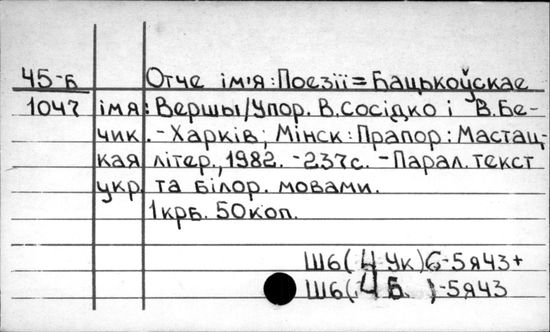 45-Б Отче ім'я : Поезії = Бацькоўскае
1047 імя : Вершы / Упор. В. Сосідко і В. Бе-
чик. - Харків ; Мінск : Прапор : Мастац-
кая літер., 1982. - 237с. - Парал. текст
укр. та білор. мовами.
1крб. 50коп.
Ш6(4Ук)6-5я43+
Ш6(4Б )-5я43